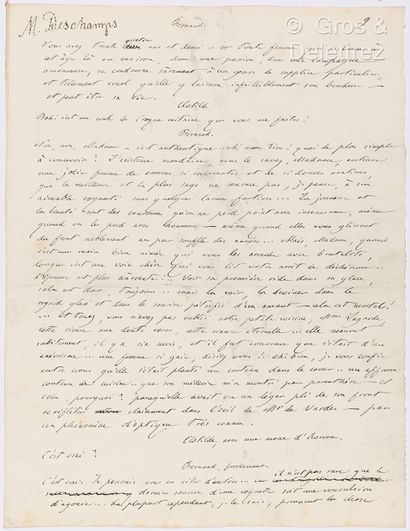 M. Deschamps
Bernard.
2
© Gros &
Delettrez
Vous avez trente ans et demi... or toute femme qui, parvenue à
cet âge là ou environ, dans une passion, dans une campagne
amoureuse, se condamne sûrement à un genre de supplice particulier,
et tellement cruel qu'elle y laissera infailliblement son bonheur —
et peut être sa vie.
Clotilde
Bah! c'est un conte de croque mitaine que vous me faites!
Bernard.
Non, non, Madame — c'est authentique... eh mon Dieu! quoi de plus simple
à concevoir? L'existence mondaine, vous le savez, Madame, entoure
une jolie femme de caresses si enivrantes et de si douces ovations,
que la meilleure et la plus sage ne renonce pas, je pense, à son
aimable royauté sans quelques larmes furtives... La jeunesse et
la beauté sont des couronnes qu'on ne perd point avec insouciance, même
quand on les perd avec honneur — même quand elles vous glissent
du front noblement un peu sous le souffle des années... Mais, Madame, quand
c'est une main bien aimée qui vous les arrache avec brutalité,
lorsque c'est une voix chère qui vous lit votre arrêt de déchéance...
l'épreuve est plus amère! Voir sa première ride dans sa glace,
cela est dur toujours... mais la voir, la deviner dans le
regard glacé et dans le sourire pétrifié d'un amant — cela est mortel!
... Et tenez, vous n'avez pas oublié notre petite voisine, Mme Lagarde
cette rieuse aux dents roses, cette rieuse éternelle... elle mourut
subitement, il y a six mois, et il fut convenu que c'était d'un
anévrisme... une femme si gaie, disiez vous!... eh bien, je vous confie
entre nous qu'elle s'était planté un couteau dans le coeur... un affreux
couteau de cuisine, que son médecin m'a montré par parenthèse — et
cela, pourquoi? parcequ'elle avait vu un léger pli de son front
se refléter clairement dans l'oeil de Mr de Vardes — par
un phénomène d'optique très connu.
Clotilde, avec une moue d'horreur.
C'est vrai?
Bernard, froidement.
C'est vrai. Je pourrais vous en citer d'autres... il n'est pas rare que le
dernier sourire d'une coquette soit une convulsion
d'agonie... La plupart cependant, je le sais, prennent la chose